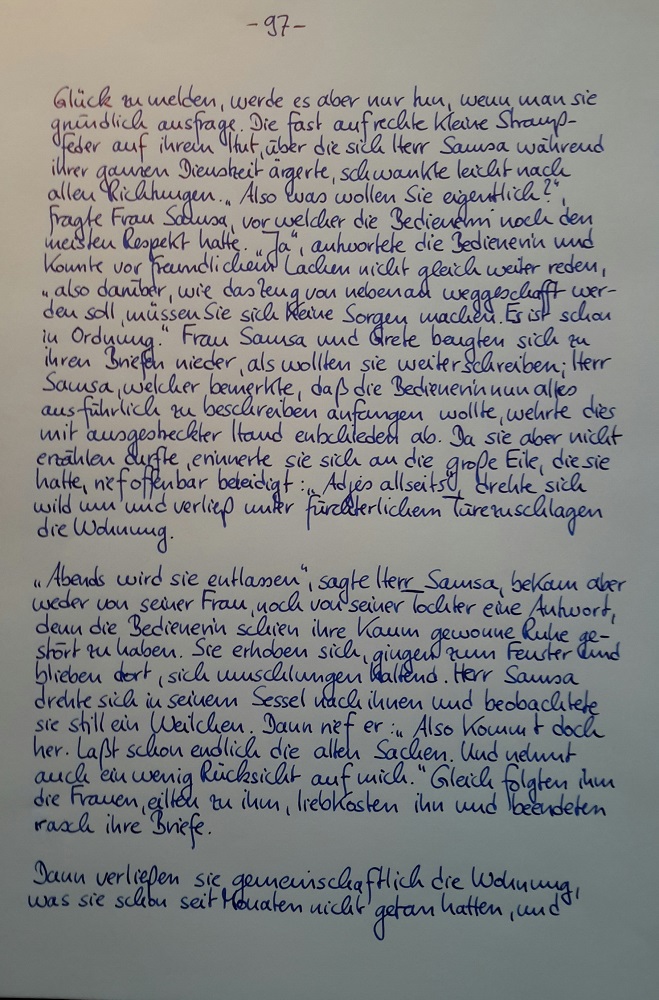 -97-
Glück zu melden, werde es aber nur tun, wenn man sie
gründlich ausfrage. Die fast aufrechte kleine Strauß-
feder auf ihrem Hut, über die sich Herr Samsa während
ihrer ganzen Dienstzeit ärgerte, schwankte leicht nach
allen Richtungen. „Also was wollen Sie eigentlich?",
fragte Frau Samsa, vor welcher die Bedienerin noch den
meisten Respekt hatte. „Ja", antwortete die Bedienerin und
konnte vor freundlichem Lachen nicht gleich weiter reden,
„also darüber, wie das Zeug von nebenan weggeschafft wer-
den soll, müssen Sie sich keine Sorgen machen. Es ist schon
in Ordnung." Frau Samsa und Grete beugten sich zu
ihren Briefen nieder, als wollten sie weiterschreiben; Herr
Samsa, welcher bemerkte, daß die Bedienerin nun alles
ausführlich zu beschreiben anfangen wollte, wehrte dies
mit ausgestreckter Hand entschieden ab. Da sie aber nicht
erzählen durfte, erinnerte sie sich an die große Eile, die sie
hatte, rief offenbar beleidigt: „Adjes allseits", drehte sich
wild um und verließ unter fürchterlichem Türezuschlagen
die Wohnung.
„Abends wird sie entlassen", sagte Herr Samsa, bekam aber
weder von seiner Frau, noch von seiner Tochter eine Antwort,
denn die Bedienerin schien ihre kaum gewonne Ruhe ge-
stört zu haben. Sie erhoben sich, gingen zum Fenster und
blieben dort, sich umschlungen haltend. Herr Samsa
drehte sich in seinem Sessel nach ihnen und beobachtete
sie still ein Weilchen. Dann rief er: „Also kommt doch
her. Laßt schon endlich die alten Sachen. Und nehmt
auch ein wenig Rücksicht auf mich." Gleich folgten ihm
die Frauen, eilten zu ihm, liebkosten ihn und beendeten
rasch ihre Briefe.
Dann verließen sie gemeinschaftlich die Wohnung,
was sie schon seit Monaten nicht getan hatten, und